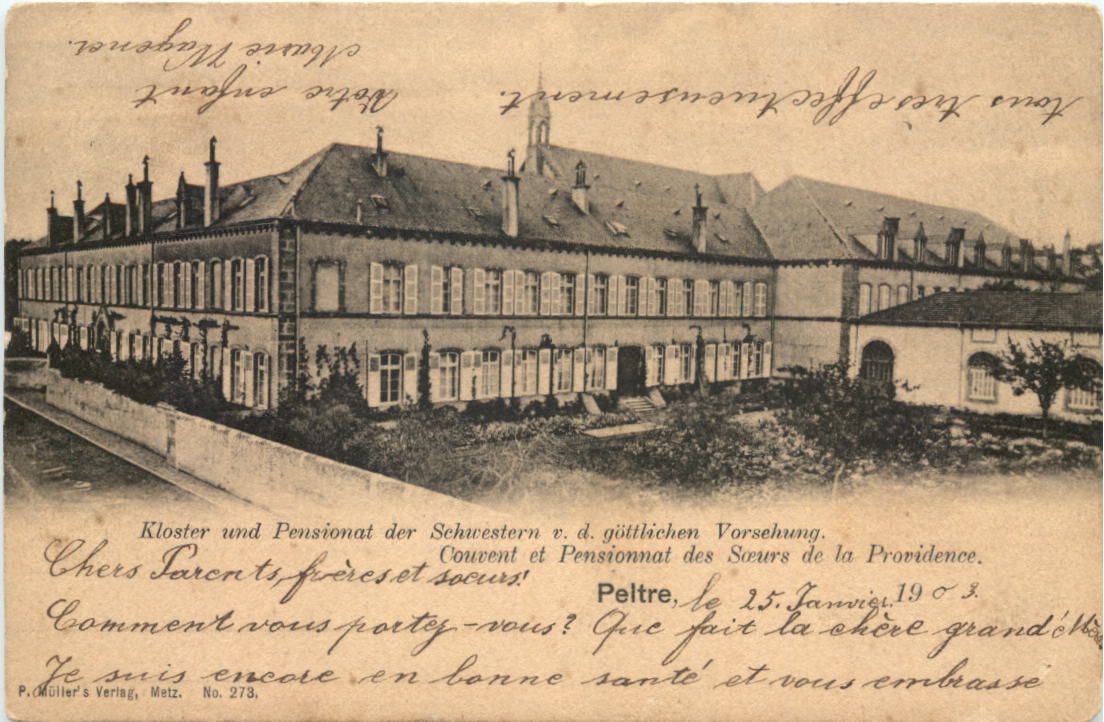 Kloster und Pensionat der Schwestern v. d. göttlichen Vorsehung.
Couvent et Pensionnat des Sœurs de la Providence.
Chers Parents, frères et sœurs!
Peltre, le 25. Janvier. 1903.
Comment vous portez-vous? Que fait la chère grand'Mère.
Je suis encore en bonne santé et vous embrasse
P. Müller's Verlag, Metz. No. 273.
tous très effectueusement.
Votre enfant
Marie Wagner.